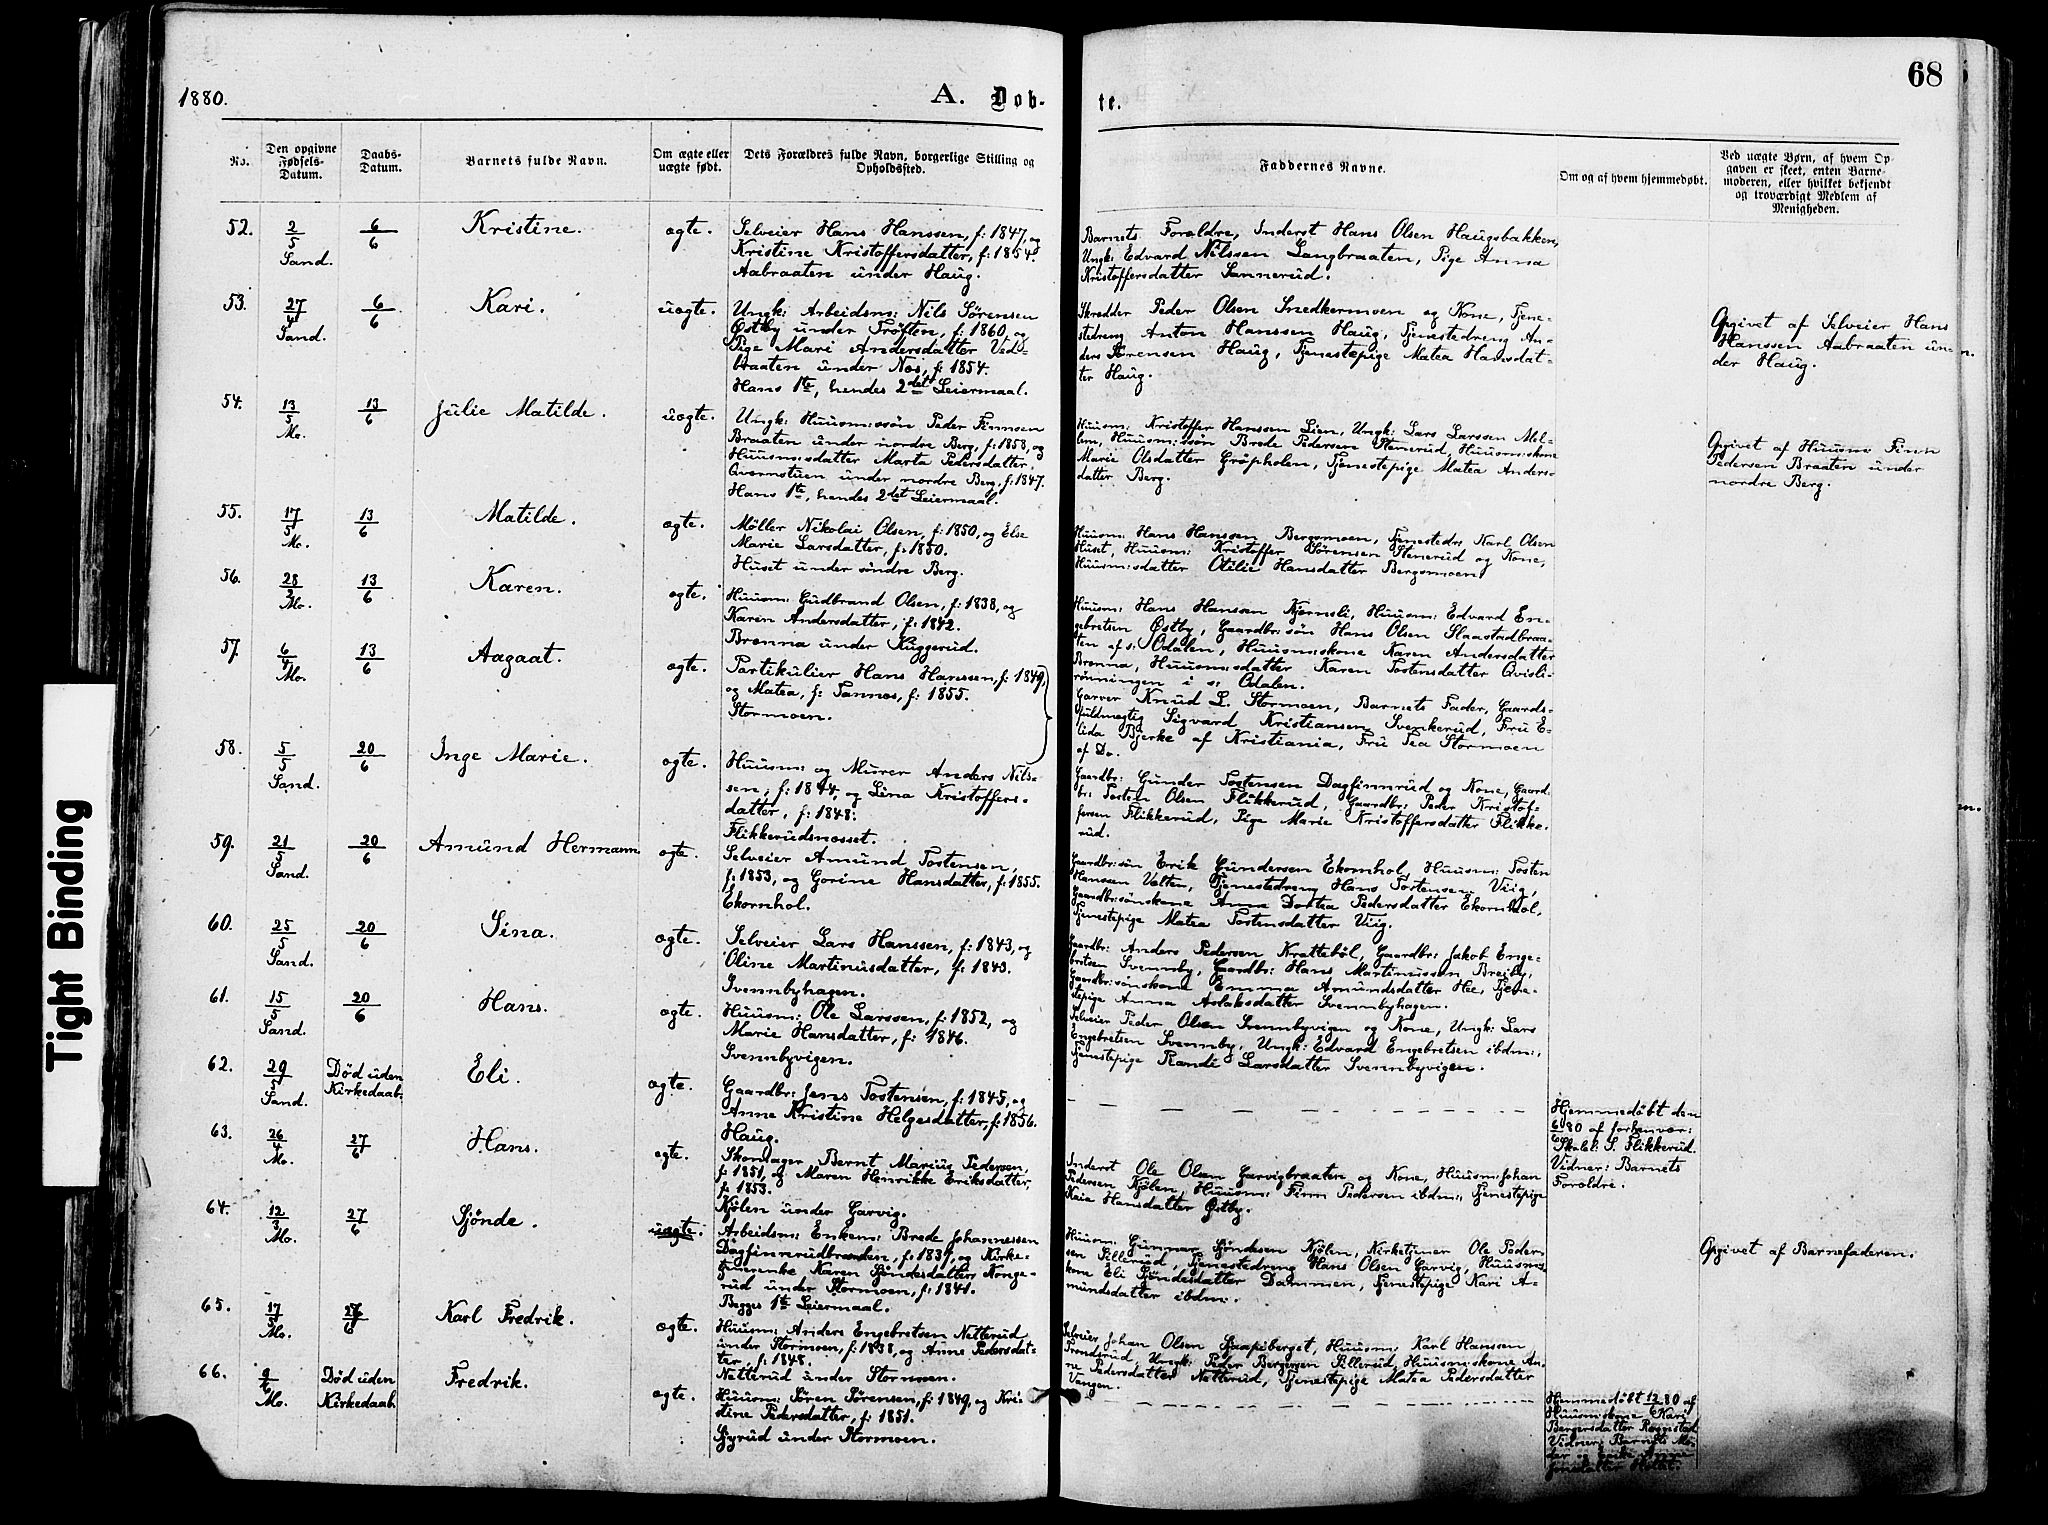 68
1880.
A. Døb-
te.
No.
Den opgivne
Fødsels-
Datum.
Daabs-
Datum.
Barnets fulde Navn.
Om ægte eller
uægte født.
Dets Forældres fulde Navn, borgerlige Stilling og
Opholdssted.
Faddernes Navne.
Om og af hvem hjemmedøbt.
Ved uægte Børn, af hvem Op-
gaven er skeet, enten Barne-
moderen, eller hvilket bekjendt
og troværdigt Medlem af
Menigheden.
52.
2/5
Sand.
6/6
Kristine.
ægte.
Selveier Hans Hanssen, f: 1847, og
Kristine Kristoffersdatter, f: 1854.
Aabraaten under Haug.
Barnets Forældre, Inderst Hans Olsen Haugsbakken,
Ungk: Edvard Nilssen Langbraaten, Pige Anna
Kristoffersdatter Sannerud.
53.
27/4
Sand.
6/6
Kari.
uægte.
Ungk: Arbeidsm: Nils Sørensen
Østby under Trøften, f: 1860, og
Pige Mari Andersdatter Ved-
braaten under Nos, f: 1854.
Hans 1te, hendes 2det Leiermaal.
Skrædder Peder Olsen Snedkermoen og Kone, Tjene-
stedreng Anton Hanssen Haug, Tjenestedreng An-
ders Sørensen Haug, Tjenestepige Matea Hansdat-
ter Haug.
Opgivet af Selveier Hans
Hanssen Aabraaten un-
der Haug.
54.
13/5
Mo.
13/6
Julie Matilde.
uægte.
Ungk: Huusm:søn Peder Finnsen
Braaten under nordre Berg, f: 1858, og
Huusm:sdatter Marta Pedersdatter
Qvernstuen under nordre Berg, f: 1847.
Hans 1te, hendes 2det Leiermaal.
Huusm: Kristoffer Hanssen Lien, Ungk: Lars Larssen Mel-
lem, Huusm:søn Brede Pedersen Stenerud, Huusm:skone
Marie Olsdatter Grøpholen, Tjenestepige Matea Anders-
datter Berg.
Opgivet af Huusm: Finn
Pedersen Braaten under
nordre Berg.
55.
17/5
Mo.
13/6
Matilde.
ægte.
Møller Nikolai Olsen, f: 1850, og Else
Marie Larsdatter, f: 1850.
Huset under søndre Berg.
Huusm: Hans Hanssen Bergsmoen, Tjenestedr: Karl Olsen
Huset, Huusm: Kristoffer Sørensen Stenerud og Kone,
Huusm:sdatter Otilie Hansdatter Bergsmoen.
56.
28/2
Mo.
13/6
Karen.
ægte.
Huusm: Gudbrand Olsen, f: 1838, og
Karen Andersdatter, f: 1842.
Brønna under Kuggerud.
Huusm: Hans Hanssen Kjernsli, Huusm: Edvard En-
gebretsen Østby, Gaardbr:søn Hans Olsen Slaastadbraa-
ten af s: Odalen, Huusm:skone Karen Andersdatter
Brønna, Huusm:sdatter Karen Tostensdatter Qvisli-
rønningen i s: Odalen.
57.
6/4
Mo.
13/6
Aagaat.
ægte.
Partikulier Hans Hanssen, f: 1849,
og Matea, f: Tannæs, f: 1855.
Stormoen.
Garver Knud L. Stormoen, Barnets Fader, Gaards-
fuldmægtig Sigvard Kristiansen Svenkerud, Fru E-
lida Bjerke af Kristiania, Fru Tea Stormoen
af Do.
58.
5/5
Sand.
20/6
Inge Marie.
ægte.
Huusm: og Murer Anders Nils-
sen, f: 1844 og Lina Kristoffers-
datter, f: 1848.
Flikkerudsmosset.
Gaardbr: Gunder Tostensen Dagfinnrud og Kone, Gaard-
br: Tosten Olsen Flikkerud, Gaardbr: Peder Kristof-
fersen Flikkerud, Pige Marie Kristoffersdatter Flikke-
rud.
59.
21/5
Sand.
20/6
Amund Hermann
ægte.
Selveier Amund Tostensen,
f: 1853, og Gorine Hansdatter, f: 1855.
Ekornhol.
Gaardbr:søn Erik Gundersen Ekornhol, Huusm: Tosten
Hanssen Valten, Tjenestedreng Hans Tostensen Viig,
Gaardbr:sønskone Anna Dortea Pedersdatter Ekornhol,
Tjenestepige Matea Tostensdatter Viig.
60.
25/5
Sand.
20/6
Sina.
ægte.
Selveier Lars Hanssen, f: 1843, og
Oline Martinusdatter, f: 1843.
Svennbyhagen.
Gaardbr: Anders Pedersen Krattebøl, Gaardbr: Jakob Enge-
bretsen Svennby, Gaardbr: Hans Martinussen Breiby,
Gaardbr:sønskone Emma Amundsdatter Hee, Tjene-
stepige Anna Aslaksdatter Svennbyhagen.
61.
15/5
Sand.
20/6
Hans.
ægte.
Huusm: Ole Larssen, f: 1852, og
Marie Hansdatter, f: 1846.
Svennbyvigen.
Selveier Peder Olsen Svennbyvigen og Kone, Ungk: Lars
Engebretsen Svennby, Ungk: Edvard Engebretsen ibdm:,
Tjenestepige Randi Larsdatter Svennbyvigen.
62.
29/5
Sand.
Død uden
Kirkedaab.
Eli.
ægte.
Gaardbr: Jens Tostensen, f: 1845, og
Anne Kristine Helgesdatter, f: 1856.
Haug.
Hjemmedøbt den
6/6 80 af forhenvær:
Skolel: S. Flikkerud.
Vidner: Barnets
Forældre.
63.
26/4
Mo.
27/6
Hans.
ægte.
Skomager Bernt Marius Pedersen,
f: 1851, og Maren Henrikke Eriksdatter,
f: 1853.
Kjølen under Garvig.
Inderst Ole Olsen Garvigbraaten og Kone, Huusm: Johan
Pedersen Kjølen, Huusm: Finn Pedersen ibdm:, Tjenestepige
Kaia Hansdatter Østby.
64.
12/3
Mo.
27/6
Sjønde.
uægte.
Arbeidsm: Enkem: Brede Johannessen
Dagfinnrudbraaten, f: 1839, og Kirke-
tjenerenke Karen Sjøndesdatter Konge-
rud under Stormoen, f: 1841.
Begges 1te Leiermaal.
Huusm: Gunnar Sjøndesen Kjølen, Kirketjener Ole Peder-
sen Sillerud, Tjenestedreng Hans Olsen Garvig, Huusm:s
kone Eli Sjøndesdatter Dammen, Tjenestepige Kari A-
mundsdatter ibdm:.
Opgivet af Barnefaderen.
65.
17/5
Mo.
27/6
Karl Fredrik.
ægte.
Huusm: Anders Engebretsen Netterud
under Stormoen, f: 1838, og Anne Pedersdat-
ter, f: 1848.
Netterud under Stormoen.
Selveier Johan Olsen Skaapiberget, Huusm: Karl Hanssen
Trondsrud, Ungk: Peder Bergersen Sillerud, Huusm:skone An-
ne Pedersdatter Netterud, Tjenestepige Matea Pedersdatter
Vangen.
66.
9/6
Mo.
Død uden
Kirkedaab.
Fredrik.
ægte.
Huusm: Søren Sørensen, f: 1849, og Kri-
stine Pedersdatter, f: 1851.
Gjyrud under Stormoen.
Hjemmedøbt 12/6 80 af
Huusm:skone Kari
Bergersdatter Roggestad
Vidner: Barnets Mo-
der og Enke Anne
Jonsdatter
Tight Binding